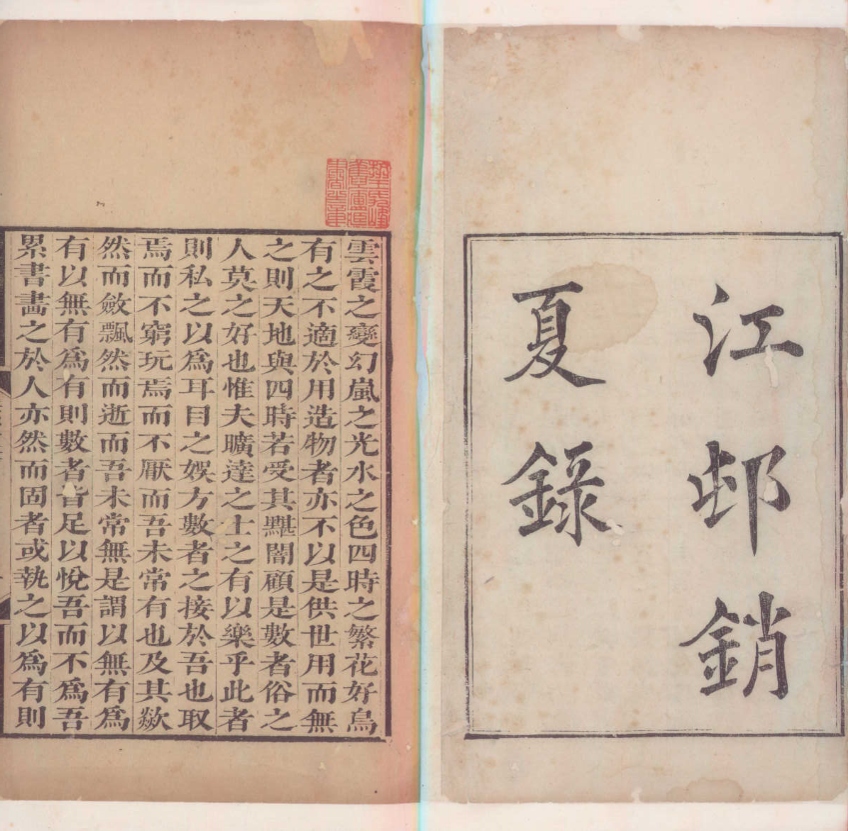 江邨銷
夏錄
雲霞之變幻嵐之光水之色四時之繁花好鳥
有之不適於用造物者亦不以是供世用而無
之則天地與四時若受其黮闇顧是數者俗之
人莫之好也惟夫曠達之士之有以樂乎此者
則私之以爲耳目之娛方數者之接於吾也取
焉而不窮玩焉而不厭而吾未常有也及其歘
然而斂飄然而逝而吾未常無是謂以無有爲
有以無有爲有則數者皆足以悅吾而不爲吾
累書畵之於人亦然而固者或執之以爲有則